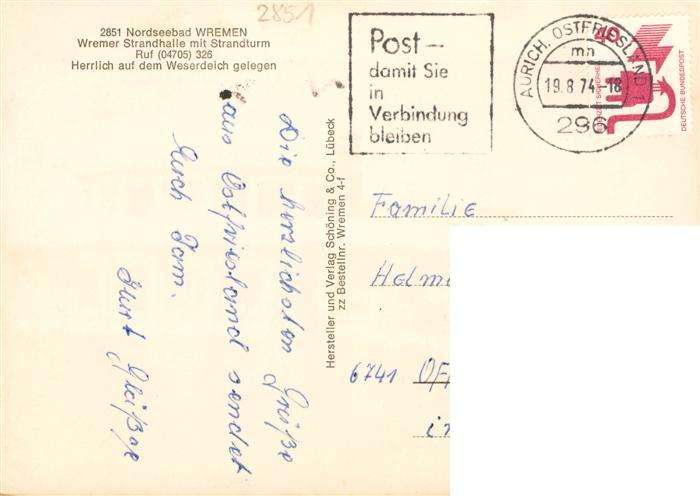 2851
2851 Nordseebad WREMEN
Wremer Strandhalle mit Strandturm
Ruf (04705) 326
Herrlich auf dem Weserdeich gelegen
Post –
damit Sie
in
Verbindung
bleiben
AURICH, OSTFRIESLAND 1
mn
19.8.74-18
296
40
DEUTSCHE BUNDESPOST
Die herzlichsten Grüße
aus Ostfriesland sendet
Euch Fam.
Kurt
Hersteller und Verlag Schöning & Co., Lübeck
zz Bestellnr. Wremen 4-f
Familie
Helm
6741 OFF
i